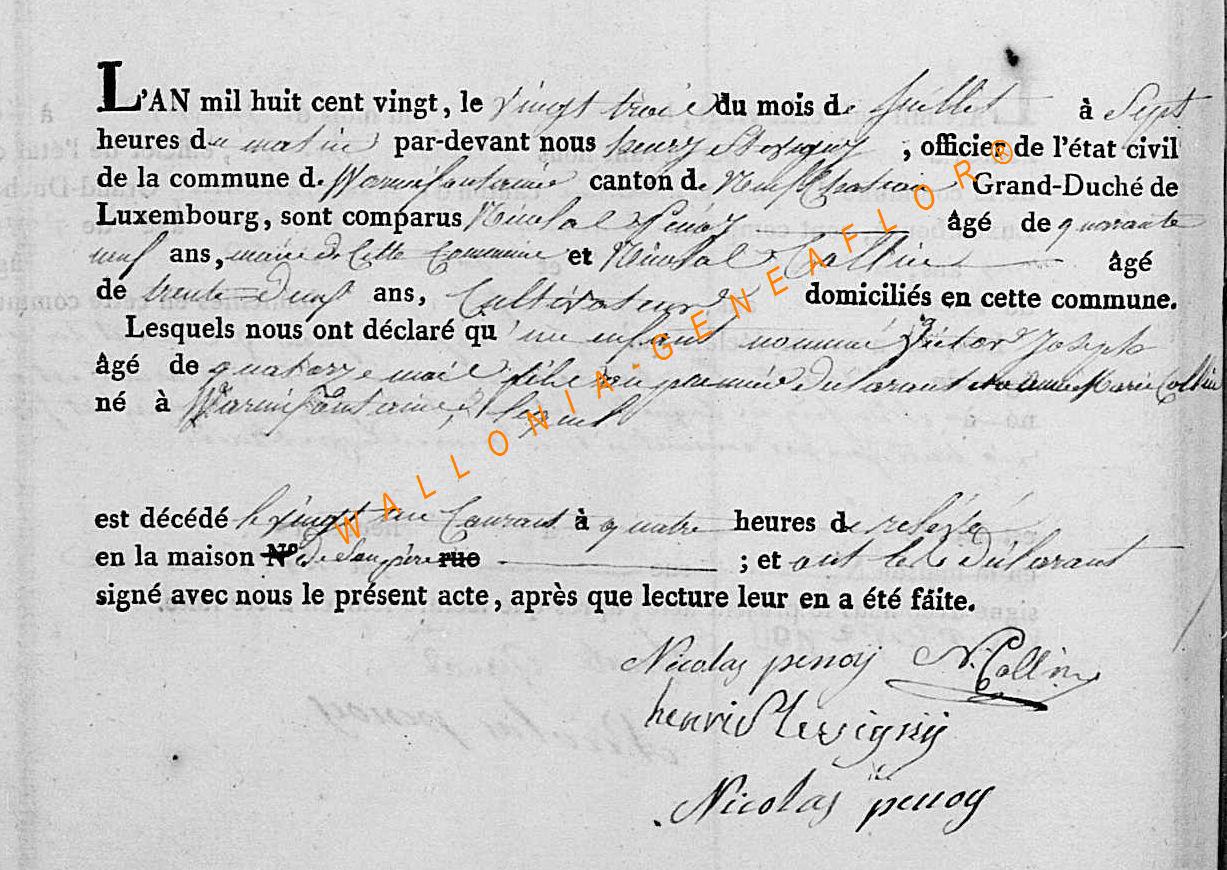 L'AN mil huit cent vingt, le vingt trois du mois de Juillet à Sept
heures du matin par-devant nous henry Stevigny, officier de l'état civil
de la commune de Warmifontaine canton de Neufchateau Grand-Duché de
Luxembourg, sont comparus Nicolas Penoy âgé de quarante
neuf ans, maire de Cette Commune et Nicolas Collin âgé
de trente-deux ans, Cultivateur domiciliés en cette commune.
Lesquels nous ont déclaré qu'un enfant nommé Victor Joseph
âgé de quatorze mois fils du premier déclarant et Marie Collin
né à Warmifontaine
est décédé le vingt un Courant à quatre heures de relevée
en la maison N° de Son père rue ; et ont les déclarant
signé avec nous le présent acte, après que lecture leur en a été faite.
Nicolas penoy N. Collin
henri Stevigny
Nicolas penoy
WALLONIA-GENEAFLOR®